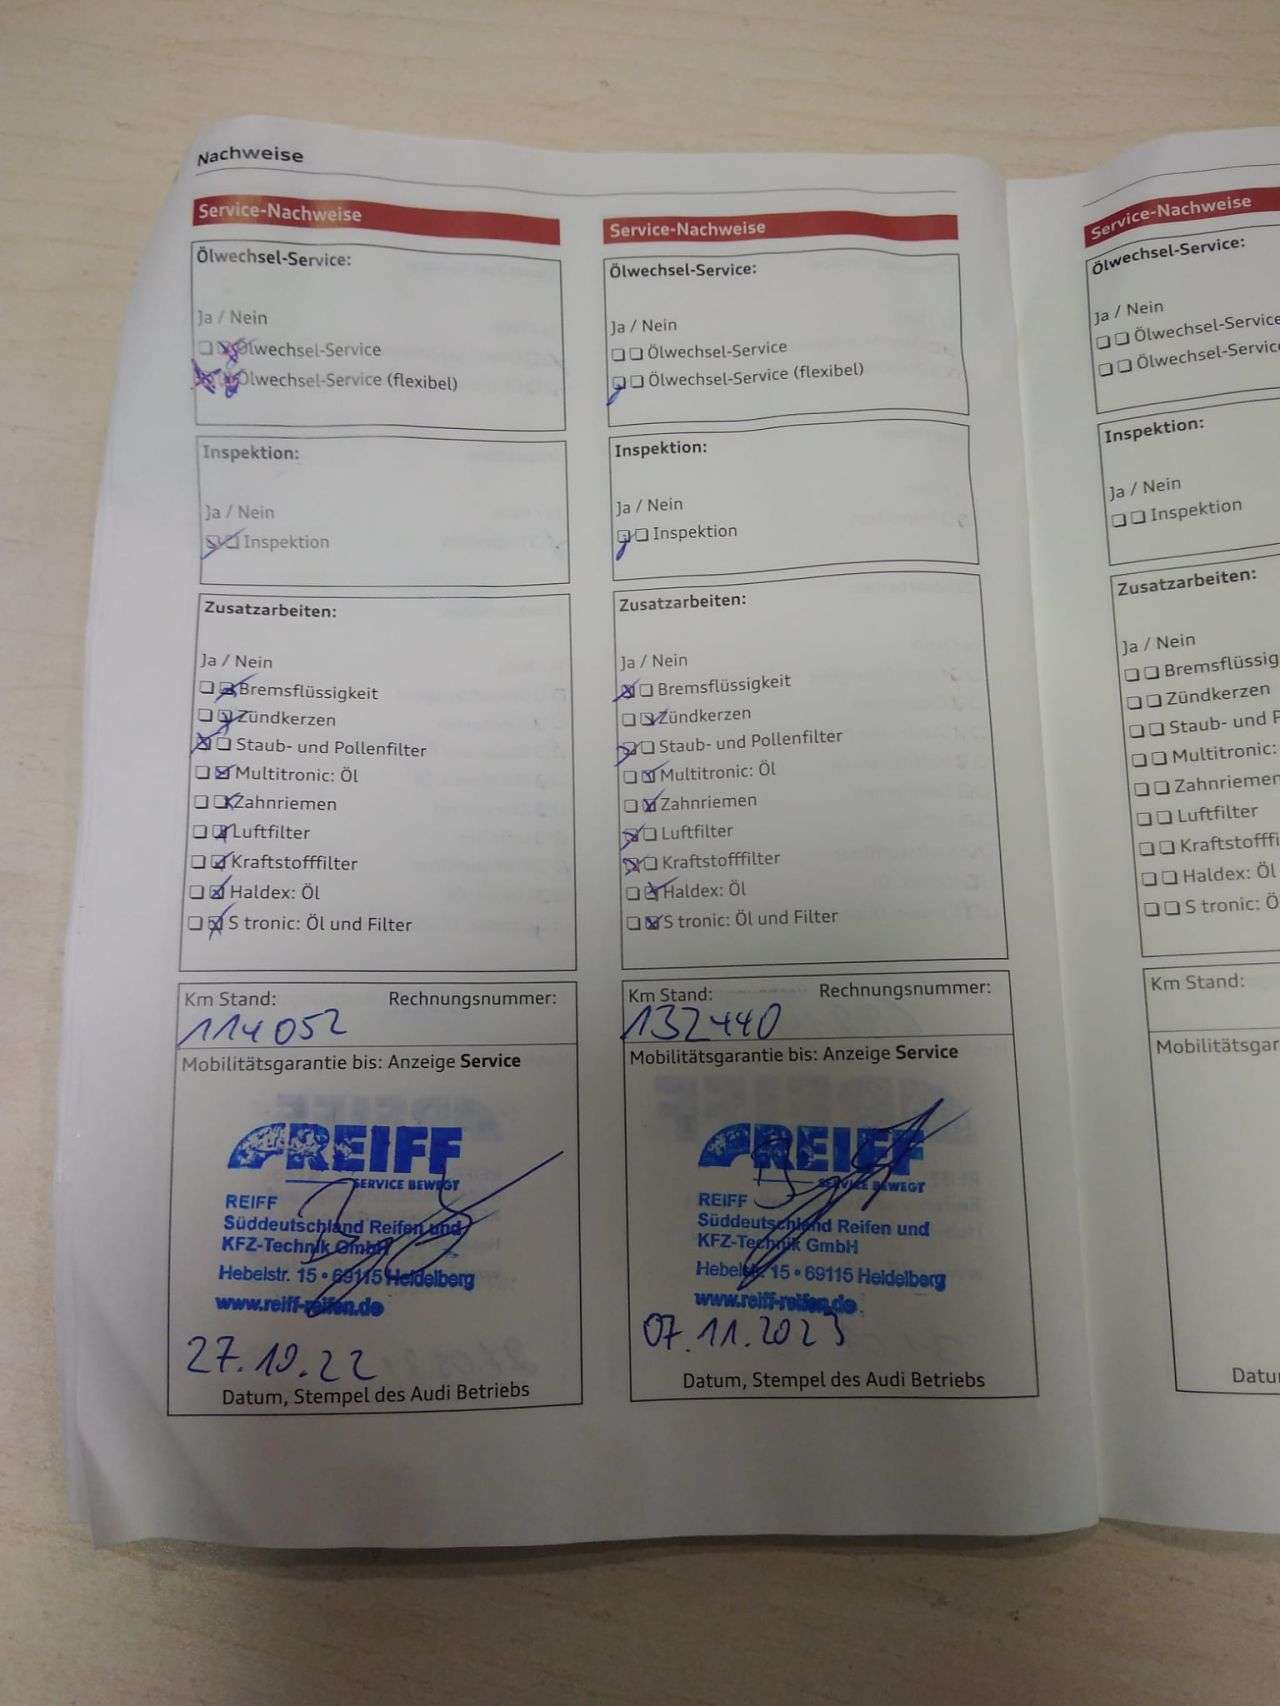 Nachweise
Service-Nachweise
Ölwechsel-Service:
Ja / Nein
Ölwechsel-Service
Ölwechsel-Service (flexibel)
Inspektion:
Ja / Nein
Inspektion
Zusatzarbeiten:
Ja / Nein
Bremsflüssigkeit
Zündkerzen
Staub- und Pollenfilter
Multitronic: Öl
Zahnriemen
Luftfilter
Kraftstofffilter
Haldex: Öl
S tronic: Öl und Filter
Km Stand: Rechnungsnummer:
114052
Mobilitätsgarantie bis: Anzeige Service
REIFF
SERVICE BEWEGT
REIFF
Süddeutschland Reifen und
KFZ-Technik GmbH
Hebelstr. 15 • 69115 Heidelberg
www.reiff-reifen.de
27.10.22
Datum, Stempel des Audi Betriebs
Service-Nachweise
Ölwechsel-Service:
Ja / Nein
Ölwechsel-Service
Ölwechsel-Service (flexibel)
Inspektion:
Ja / Nein
Inspektion
Zusatzarbeiten:
Ja / Nein
Bremsflüssigkeit
Zündkerzen
Staub- und Pollenfilter
Multitronic: Öl
Zahnriemen
Luftfilter
Kraftstofffilter
Haldex: Öl
S tronic: Öl und Filter
Km Stand: Rechnungsnummer:
132440
Mobilitätsgarantie bis: Anzeige Service
REIFF
SERVICE BEWEGT
REIFF
Süddeutschland Reifen und
KFZ-Technik GmbH
Hebelstr. 15 • 69115 Heidelberg
www.reiff-reifen.de
07.11.2023
Datum, Stempel des Audi Betriebs
Service-Nachweise
Ölwechsel-Service:
Ja / Nein
Ölwechsel-Service
Ölwechsel-Servic
Inspektion:
Ja / Nein
Inspektion
Zusatzarbeiten:
Ja / Nein
Bremsflüssig
Zündkerzen
Staub- und P
Multitronic:
Zahnriemen
Luftfilter
Kraftstofffi
Haldex: Öl
S tronic: Ö
Km Stand:
Mobilitätsgar
Datu